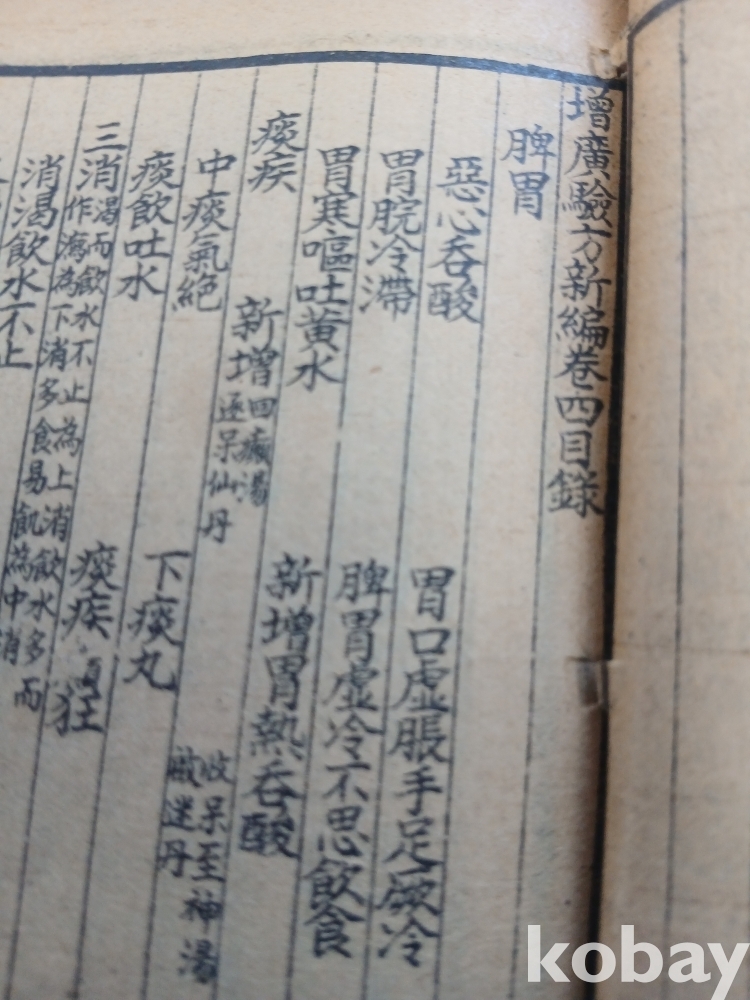 增廣驗方新編卷四目錄
脾胃
惡心吞酸 胃口虛脹手足厥冷
胃脘冷滯 脾胃虛冷不思飲食
胃寒嘔吐黃水 新增胃熱吞酸
痰疾
新增回癲湯
逐呆仙丹 收呆至神湯
啟迷丹
中痰氣絕
下痰丸
痰飲吐水 痰疾 狂
三消渴而飲水不止為上消飲水多而
作瀉為下消多食易飢為中消
消渴飲水不止
kobay